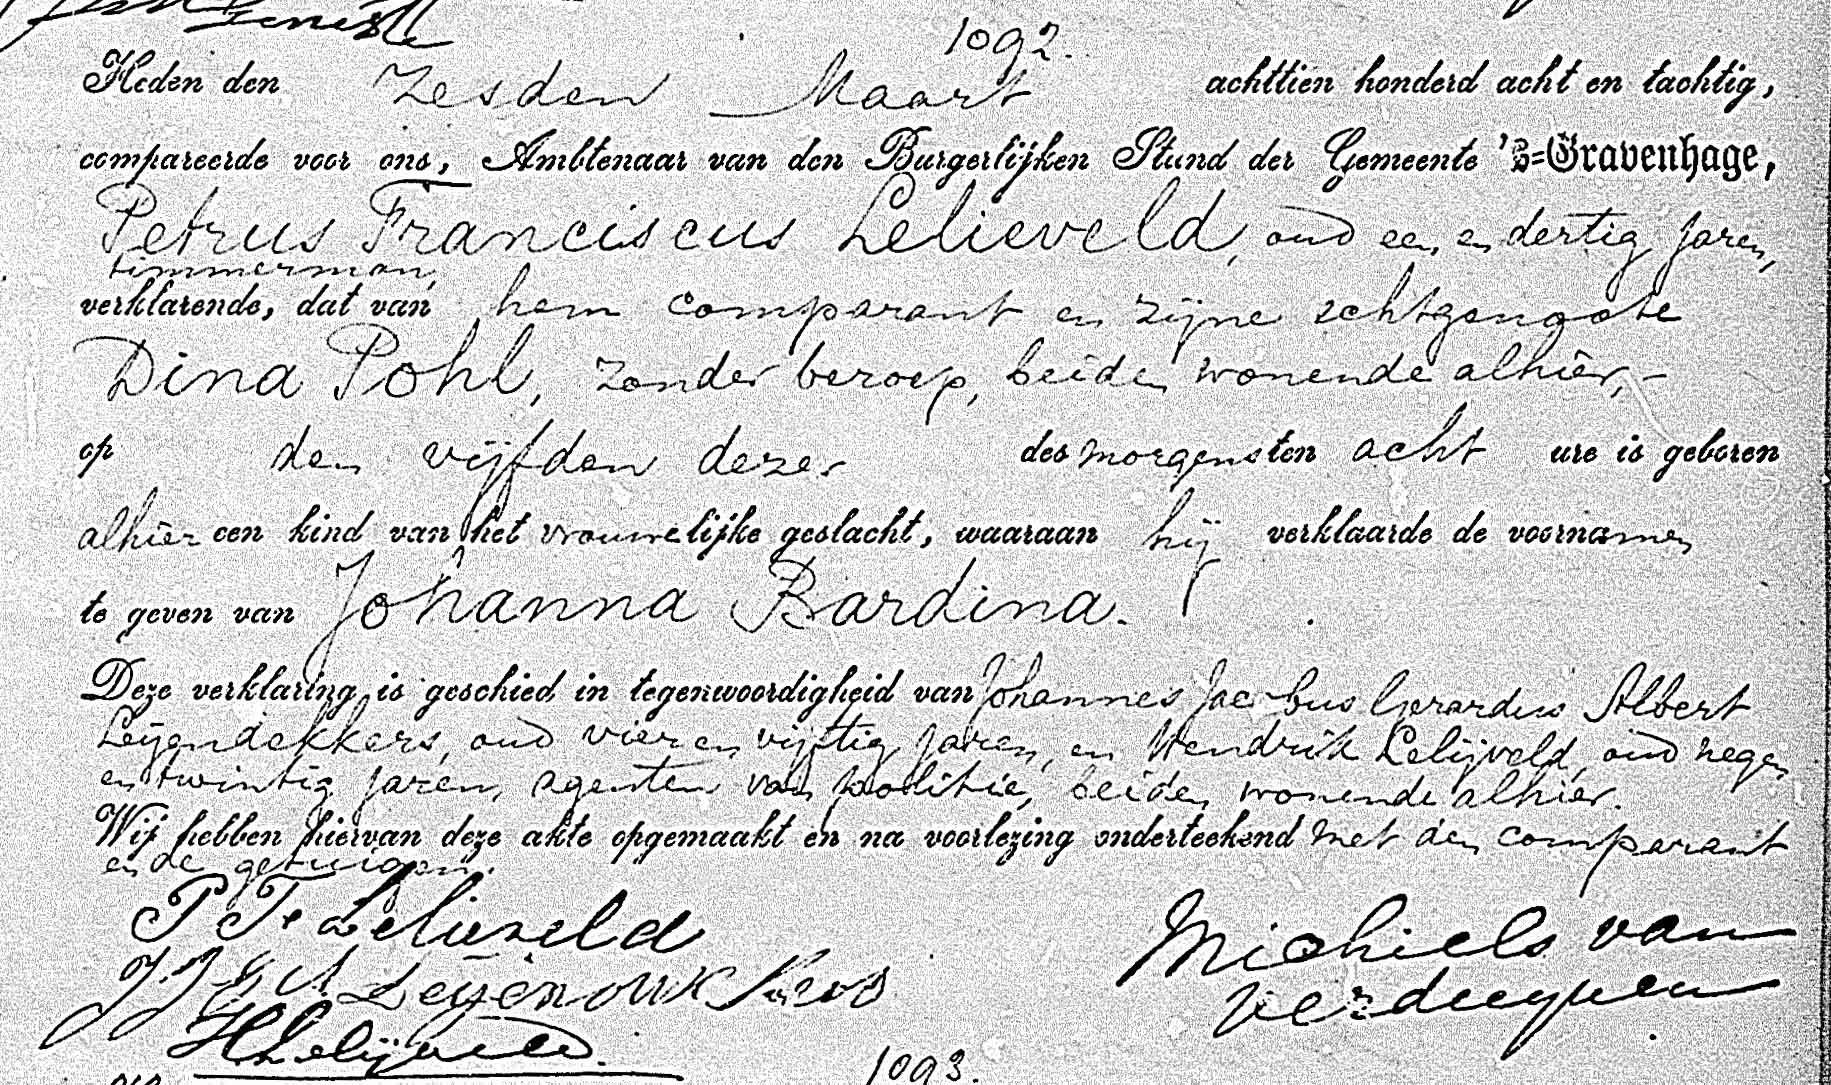 1092.
Heden den Zesden Maart achttien honderd acht en tachtig,
compareerde voor ons, Ambtenaar van den Burgerlijken Stand der Gemeente 's-Gravenhage,
Petrus Franciscus Lelieveld, oud een en dertig jaren,
timmerman,
verklarende, dat van hem comparant en zijne echtgenoote
Dina Pohl, zonder beroep, beiden wonende alhier,
op den vijfden dezer des morgens ten acht ure is geboren
alhier een kind van het vrouwelijke geslacht, waaraan hij verklaarde de voornamen
te geven van Johanna Bardina.
Deze verklaring is geschied in tegenwoordigheid van Johannes Jacobus Gerardus Albert
Leijendekkers, oud vier en vijftig jaren, en Hendrik Lelijveld, oud negen
en twintig jaren, agenten van politie, beiden wonende alhier.
Wij hebben hiervan deze akte opgemaakt en na voorlezing onderteekend met den comparant
en de getuigen.
P F Lelieveld
Michiels van
Verduynen
H Lelijveld.
1093.